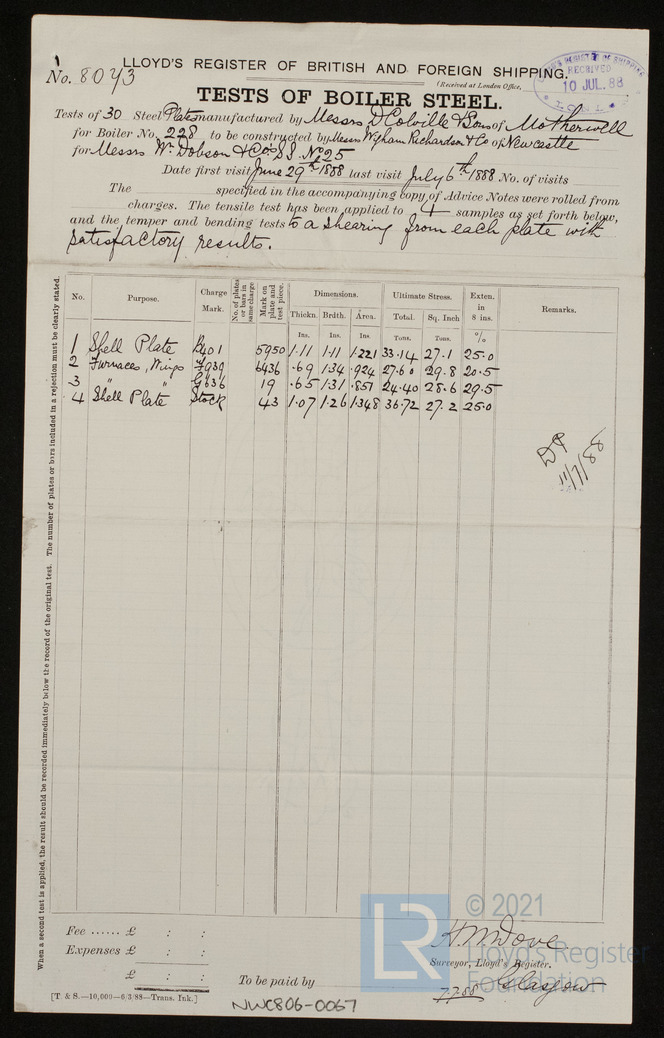 No. 8043
LLOYD'S REGISTER OF BRITISH AND FOREIGN SHIPPING.
(Received at London Office,
LLOYD'S REGISTER OF SHIPPING
RECEIVED
10 JUL. 88
TESTS OF BOILER STEEL.
Tests of 30 Steel Plates manufactured by Messrs D Colville & Sons of Motherwell
for Boiler No. 228 to be constructed by Messrs Wigham Richardson & Co of Newcastle
for Messrs Wm Dobson & Co's S.S. No 25
Date first visit June 29th 1888 last visit July 6th 1888 No. of visits
The specified in the accompanying copy of Advice Notes were rolled from
charges. The tensile test has been applied to 4 samples as set forth below,
and the temper and bending tests to a shearing from each plate with
satisfactory results.
No. Purpose. Charge Mark. No. of plates or bars in same charge Mark on plate and test piece. Dimensions. Ultimate Stress. Exten. in 8 ins. Remarks.
Thickn. Brdth. Area. Total. Sq. Inch
Ins. Ins. Ins. Tons. Tons. %
1 Shell Plate B401 5950 1.11 1.11 1.221 33.14 27.1 25.0
2 Furnaces, Wings F939 6436 .69 1.34 .924 27.60 29.8 20.5
3 " " G636 19 .65 1.31 .851 24.40 28.6 29.5
4 Shell Plate Stock 43 1.07 1.26 1.348 36.72 27.2 25.0
11/7/88
When a second test is applied, the result should be recorded immediately below the record of the original test. The number of plates or bars included in a rejection must be clearly stated.
Fee ...... £ : :
Expenses £ : :
£ : :
To be paid by
H M Dove
Surveyor, Lloyd's Register.
7.7.88 Glasgow
[T. & S.—10,000—6/3/88—Trans. Ink.]
NWC806-0067
LR
© 2021
Lloyd's Register
Foundation